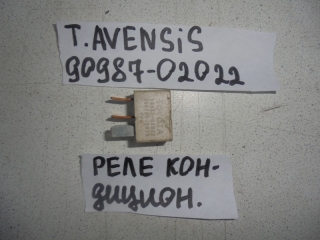 T. AVENSiS
90987-02022
РЕЛЕ КОН-
ДИЦИОН.